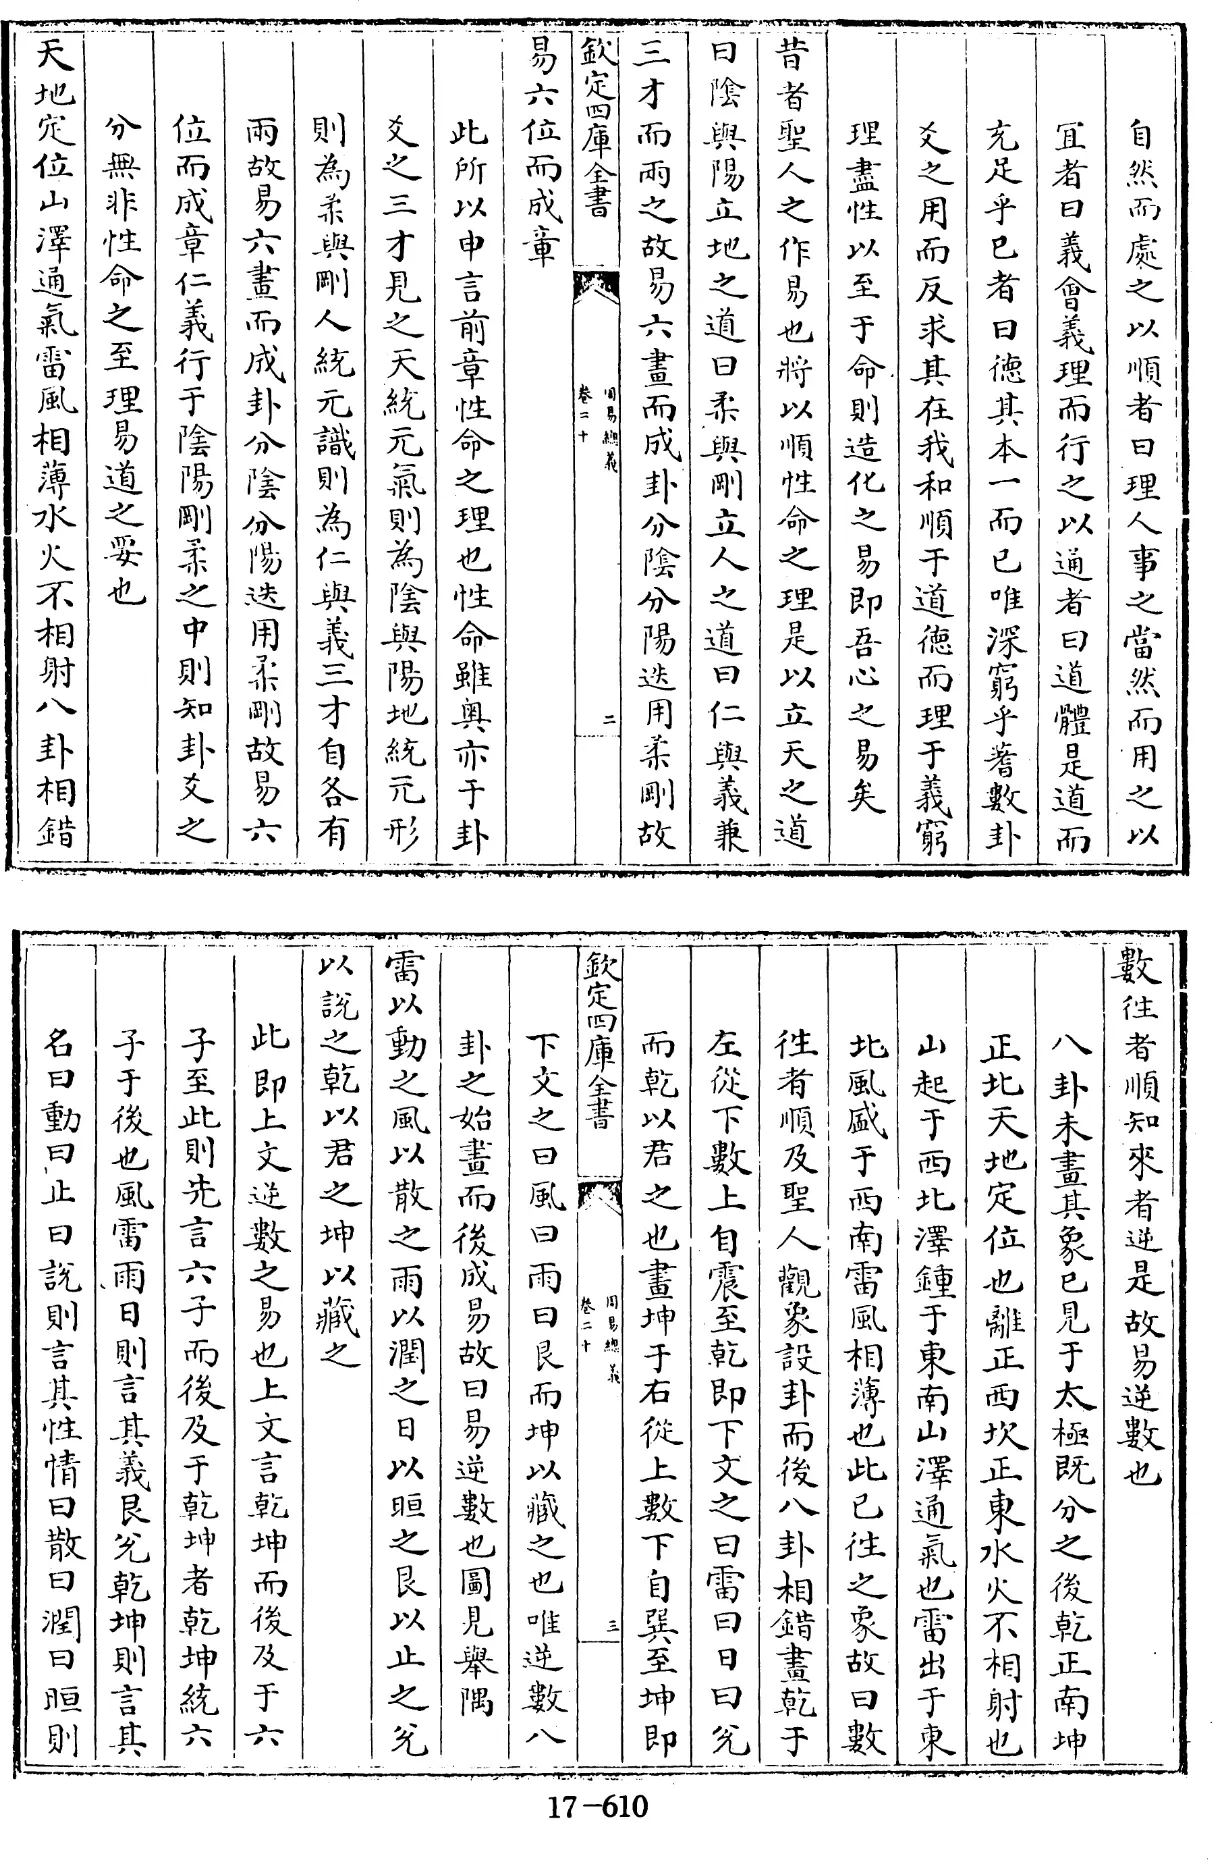 自然而處之以順者曰理人事之當然而用之以
宜者曰義會義理而行之以通者曰道體是道而
充足乎已者曰德其本一而已唯深窮乎蓍數卦
爻之用而反求其在我和順于道德而理于義窮
理盡性以至于命則造化之易即吾心之易矣
昔者聖人之作易也將以順性命之理是以立天之道
曰陰與陽立地之道曰柔與剛立人之道曰仁與義兼
三才而兩之故易六畫而成卦分陰分陽迭用柔剛故
欽定四庫全書
周易總義
卷二十
二
易六位而成章
此所以申言前章性命之理也性命雖奥亦于卦
爻之三才見之天統元氣則為陰與陽地統元形
則為柔與剛人統元識則為仁與義三才自各有
兩故易六畫而成卦分陰分陽迭用柔剛故易六
位而成章仁義行于陰陽剛柔之中則知卦爻之
分無非性命之至理易道之妥也
天地定位山澤通氣雷風相薄水火不相射八卦相錯
數往者順知來者逆是故易逆數也
八卦未畫其象已見于太極既分之後乾正南坤
正北天地定位也離正西坎正東水火不相射也
山起于西北澤鍾于東南山澤通氣也雷出于東
北風盛于西南雷風相薄也此已往之象故曰數
往者順及聖人觀象設卦而後八卦相錯畫乾于
左從下數上自震至乾即下文之曰雷曰日曰兌
而乾以君之也畫坤于右從上數下自巽至坤即
欽定四庫全書
周易總義
卷二十
三
下文之曰風曰雨曰艮而坤以藏之也唯逆數八
卦之始畫而後成易故曰易逆數也圖見舉隅
雷以動之風以散之雨以潤之日以晅之艮以止之兌
以說之乾以君之坤以藏之
此即上文逆數之易也上文言乾坤而後及于六
子至此則先言六子而後及于乾坤者乾坤統六
子于後也風雷雨日則言其義艮兌乾坤則言其
名曰動曰止曰說則言其性情曰散曰潤曰晅則
17-610